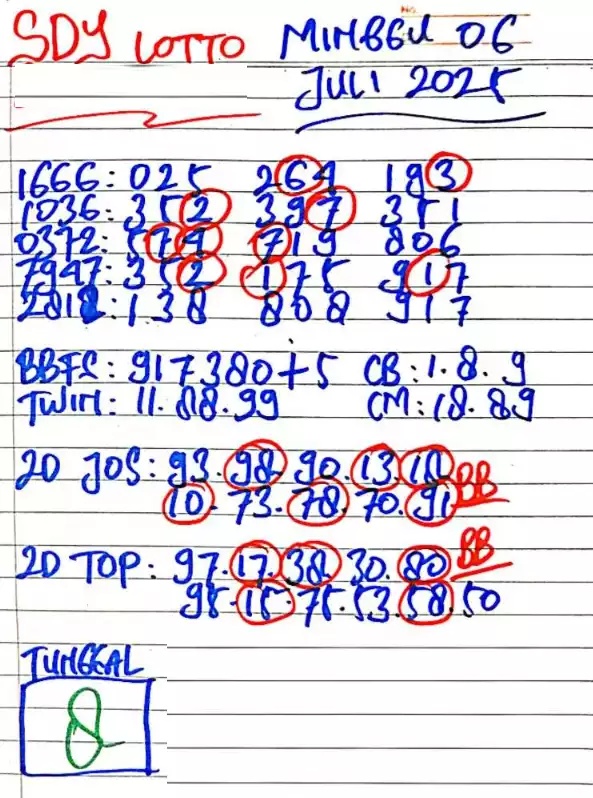 SDY LOTTO MINGGU 06
JULI 2025
1666: 025 264 193
1036: 352 397 351
0372: 574 719 806
7947: 352 175 917
2818: 138 808 917
BBFS: 917380+5 CB: 1.8.9
TWIN: 11.88.99 CM: 18.89
2D JOS: 93.98.90.13.18
10.73.78.70.91 BB
2D TOP: 97.17.38.30.80 BB
95.15.75.53.58.50
TUNGGAL
8